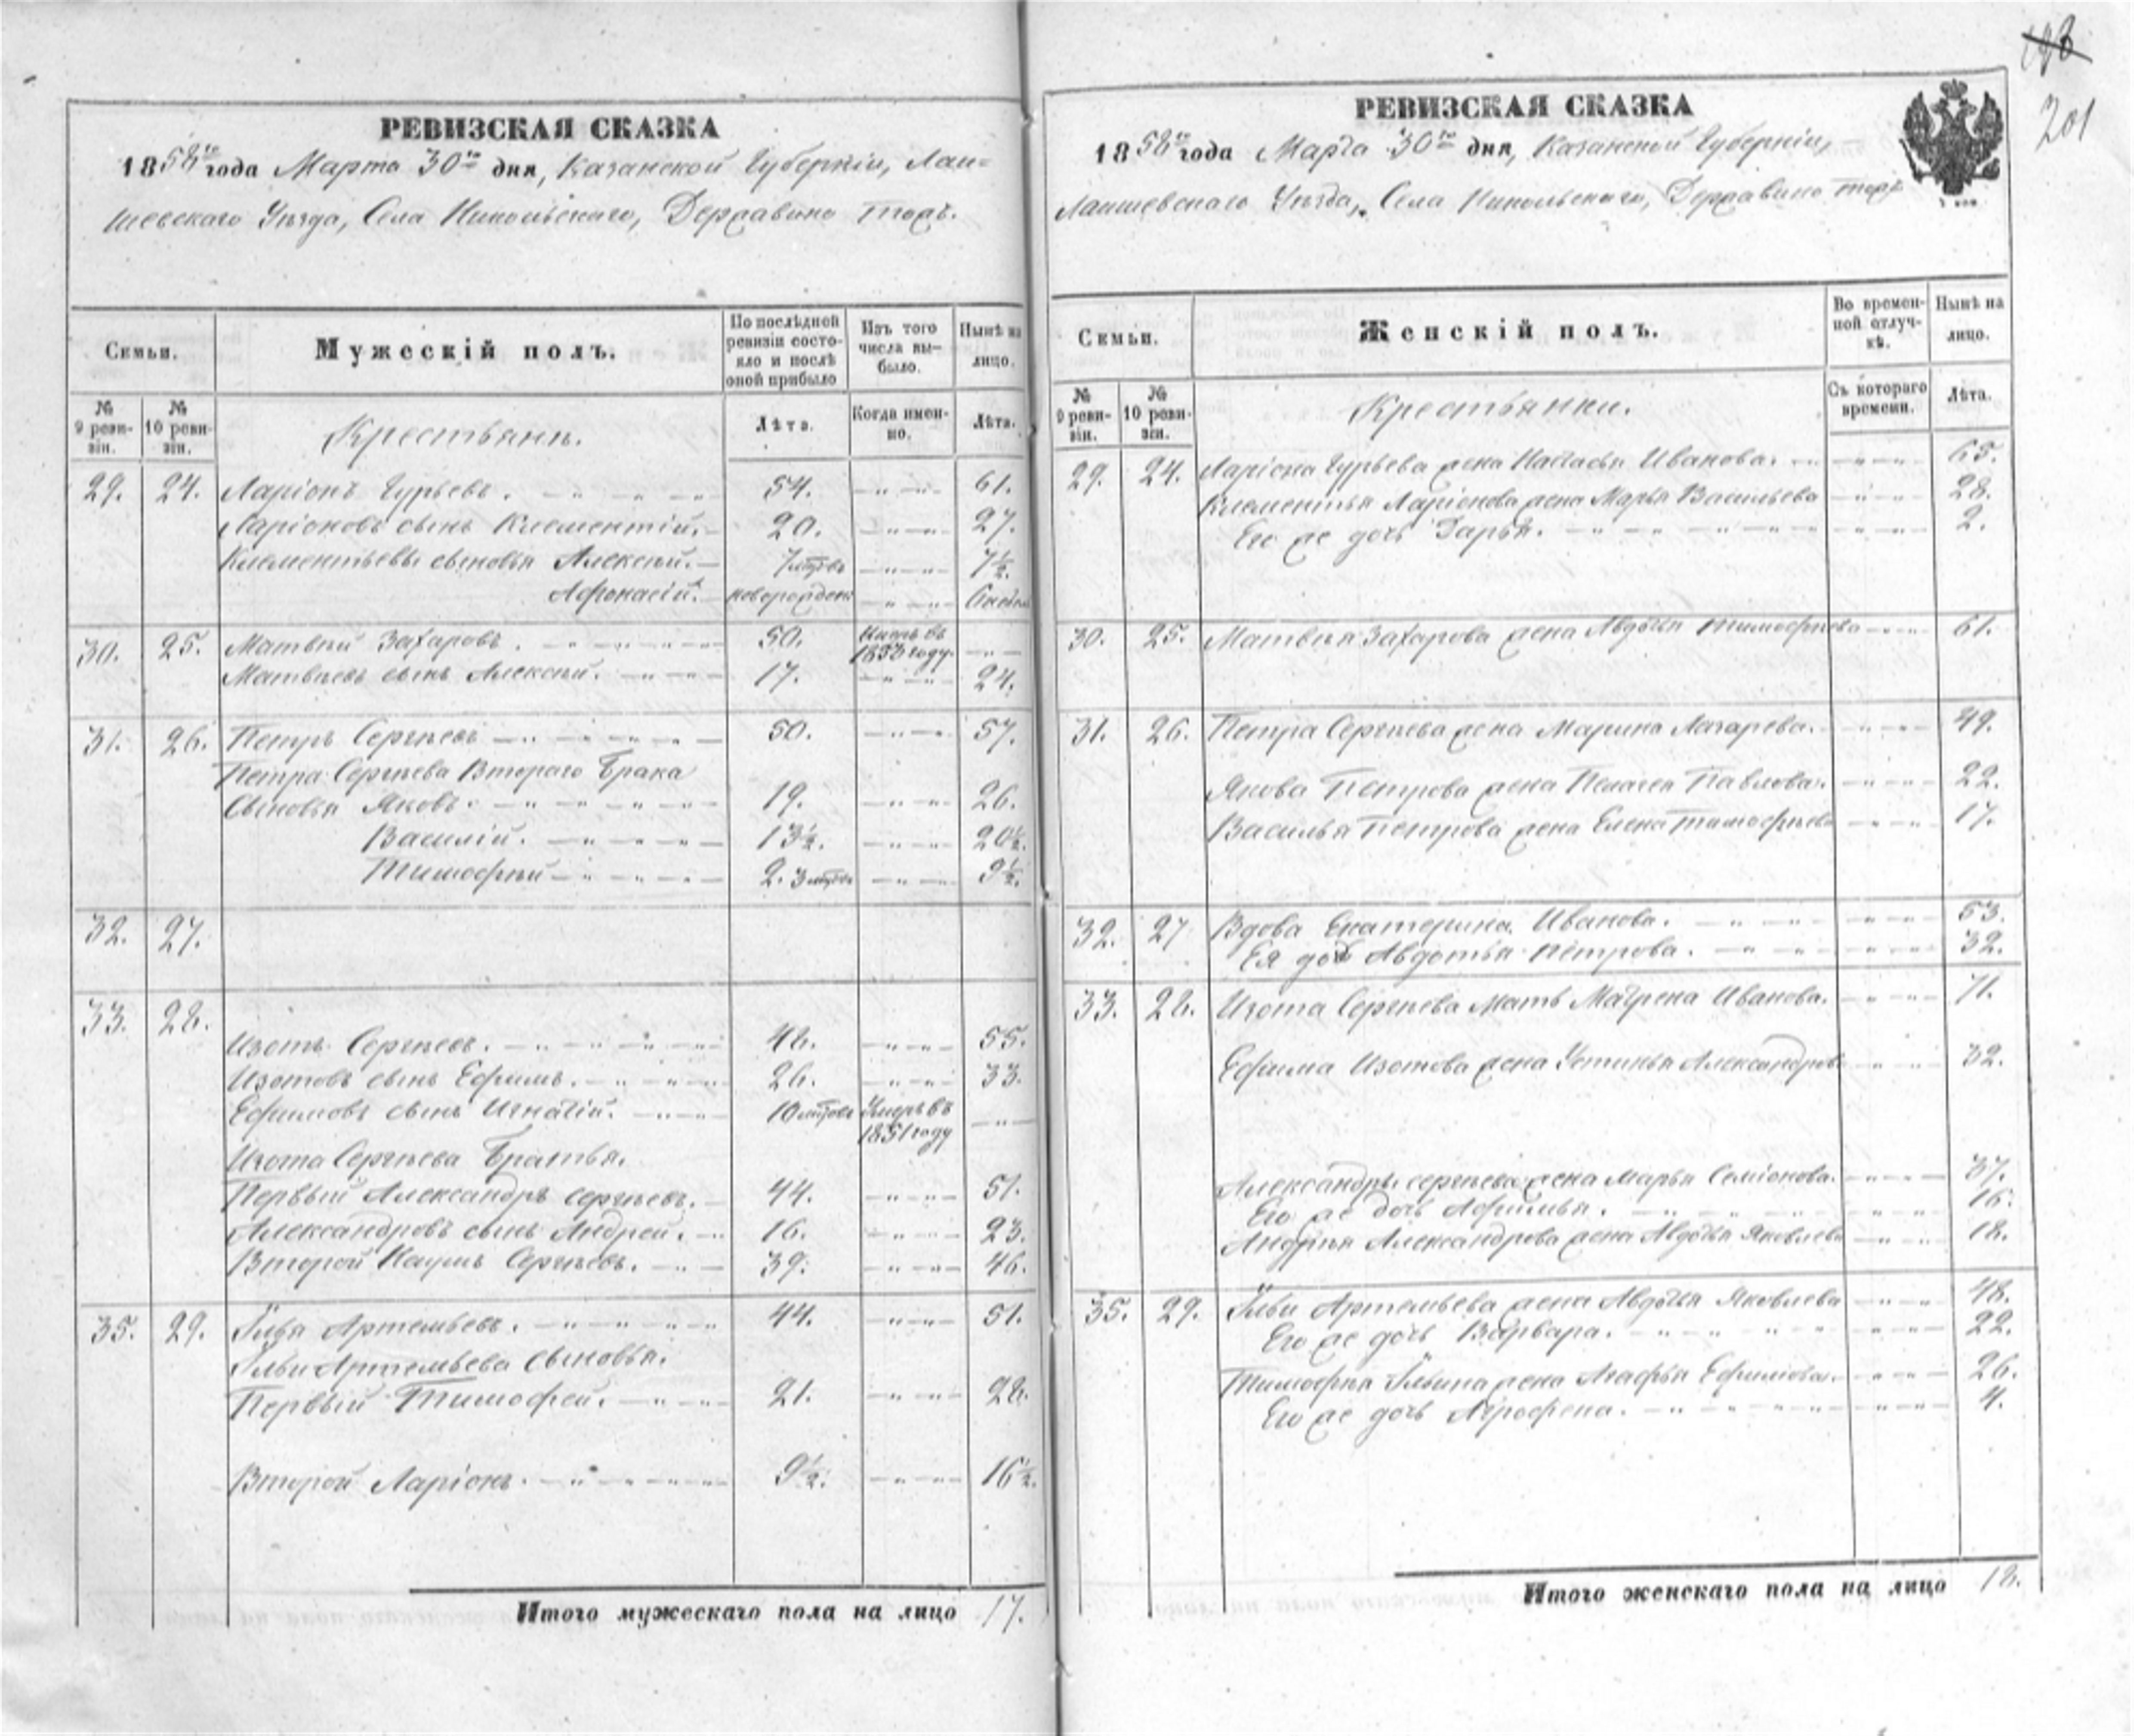 РЕВИЗСКАЯ СКАЗКА
1858го года Марта 30го дня, Казанской Губерніи, Лаи-
шевскаго Уѣзда, Села Никольскаго, Державино тожъ.
Семьи.
Мужескій полъ.
По послѣдней ревизіи состояло и послѣ оной прибыло
Изъ того числа выбыло.
Нынѣ на лицо.
№ 9 ревизіи.
№ 10 ревизіи.
Крестьяне.
Лѣта.
Когда именно.
Лѣта.
29. 24. Ларіонъ Гурьевъ. 54. 61.
Ларіоновъ сынъ Клементій. 20. 27.
Клементьевы сыновья Алексѣй. 7 мцовъ 7½.
Афонасій. новорожден
30. 25. Матвѣй Захаровъ. 50. въ 1853 году
Матвѣевъ сынъ Алексѣй. 17. 24.
31. 26. Петръ Сергѣевъ 50. 57.
Петра Сергѣева Втораго брака
Сыновья Яковъ. 19. 26.
Василій. 13½. 20½.
Тимофѣй 2. 3 мцовъ 9½.
32. 27.
33. 28.
Изотъ Сергѣевъ. 48. 55.
Изотовъ сынъ Ефимъ. 26. 33.
Ефимовъ сынъ Игнатій. 10 мцовъ Умеръ въ 1851 году
Изота Сергѣева Братья.
Первый Александръ Сергѣевъ. 44. 51.
Александровъ сынъ Андрей. 16. 23.
Второй Наумъ Сергѣевъ. 39. 46.
35. 29. Илья Артемьевъ. 44. 51.
Ильи Артемьева Сыновья.
Первый Тимофей. 21. 28.
Второй Ларіонъ. 9½. 16½.
Итого мужескаго пола на лицо 17.
201
РЕВИЗСКАЯ СКАЗКА
1858го года Марта 30го дня, Казанской Губерніи,
Лаишевскаго Уѣзда, Села Никольскаго, Державино тожъ
Семьи.
Женскій полъ.
Во временной отлучкѣ.
Нынѣ на лицо.
№ 9 ревизіи.
№ 10 ревизіи.
Крестьянки.
Съ котораго времени.
Лѣта.
29. 24. Ларіона Гурьева жена Настасья Иванова. 65.
Клементья Ларіонова жена Марья Васильева 28.
Его же дочь Дарья. 2.
30. 25. Матвѣя Захарова жена Авдотья Тимофѣева 61.
31. 26. Петра Сергѣева жена Марина Лазарева. 49.
Якова Петрова жена Пелагея Павлова. 22.
Василья Петрова жена Елена Тимофѣева 17.
32. 27 Вдова Екатерина Иванова. 53.
Ея доч Авдотья Петрова. 32.
33. 28. Изота Сергѣева Мать Матрена Иванова. 71.
Ефима Изотова жена Устинья Александрова 32.
Александры Сергѣева жена Марья Семіонова. 37.
Его же дочь Афимья. 16.
Андрѣя Александрова жена Авдотья Яковлева 18.
35. 29. Ильи Артемьева жена Авдотья Яковлева 48.
Его же дочь Варвара. 22.
Тимофѣя Ильина жена Агафья Ефимова. 26.
Его же дочь Агрофена. 4.
Итого женскаго пола на лицо 18.